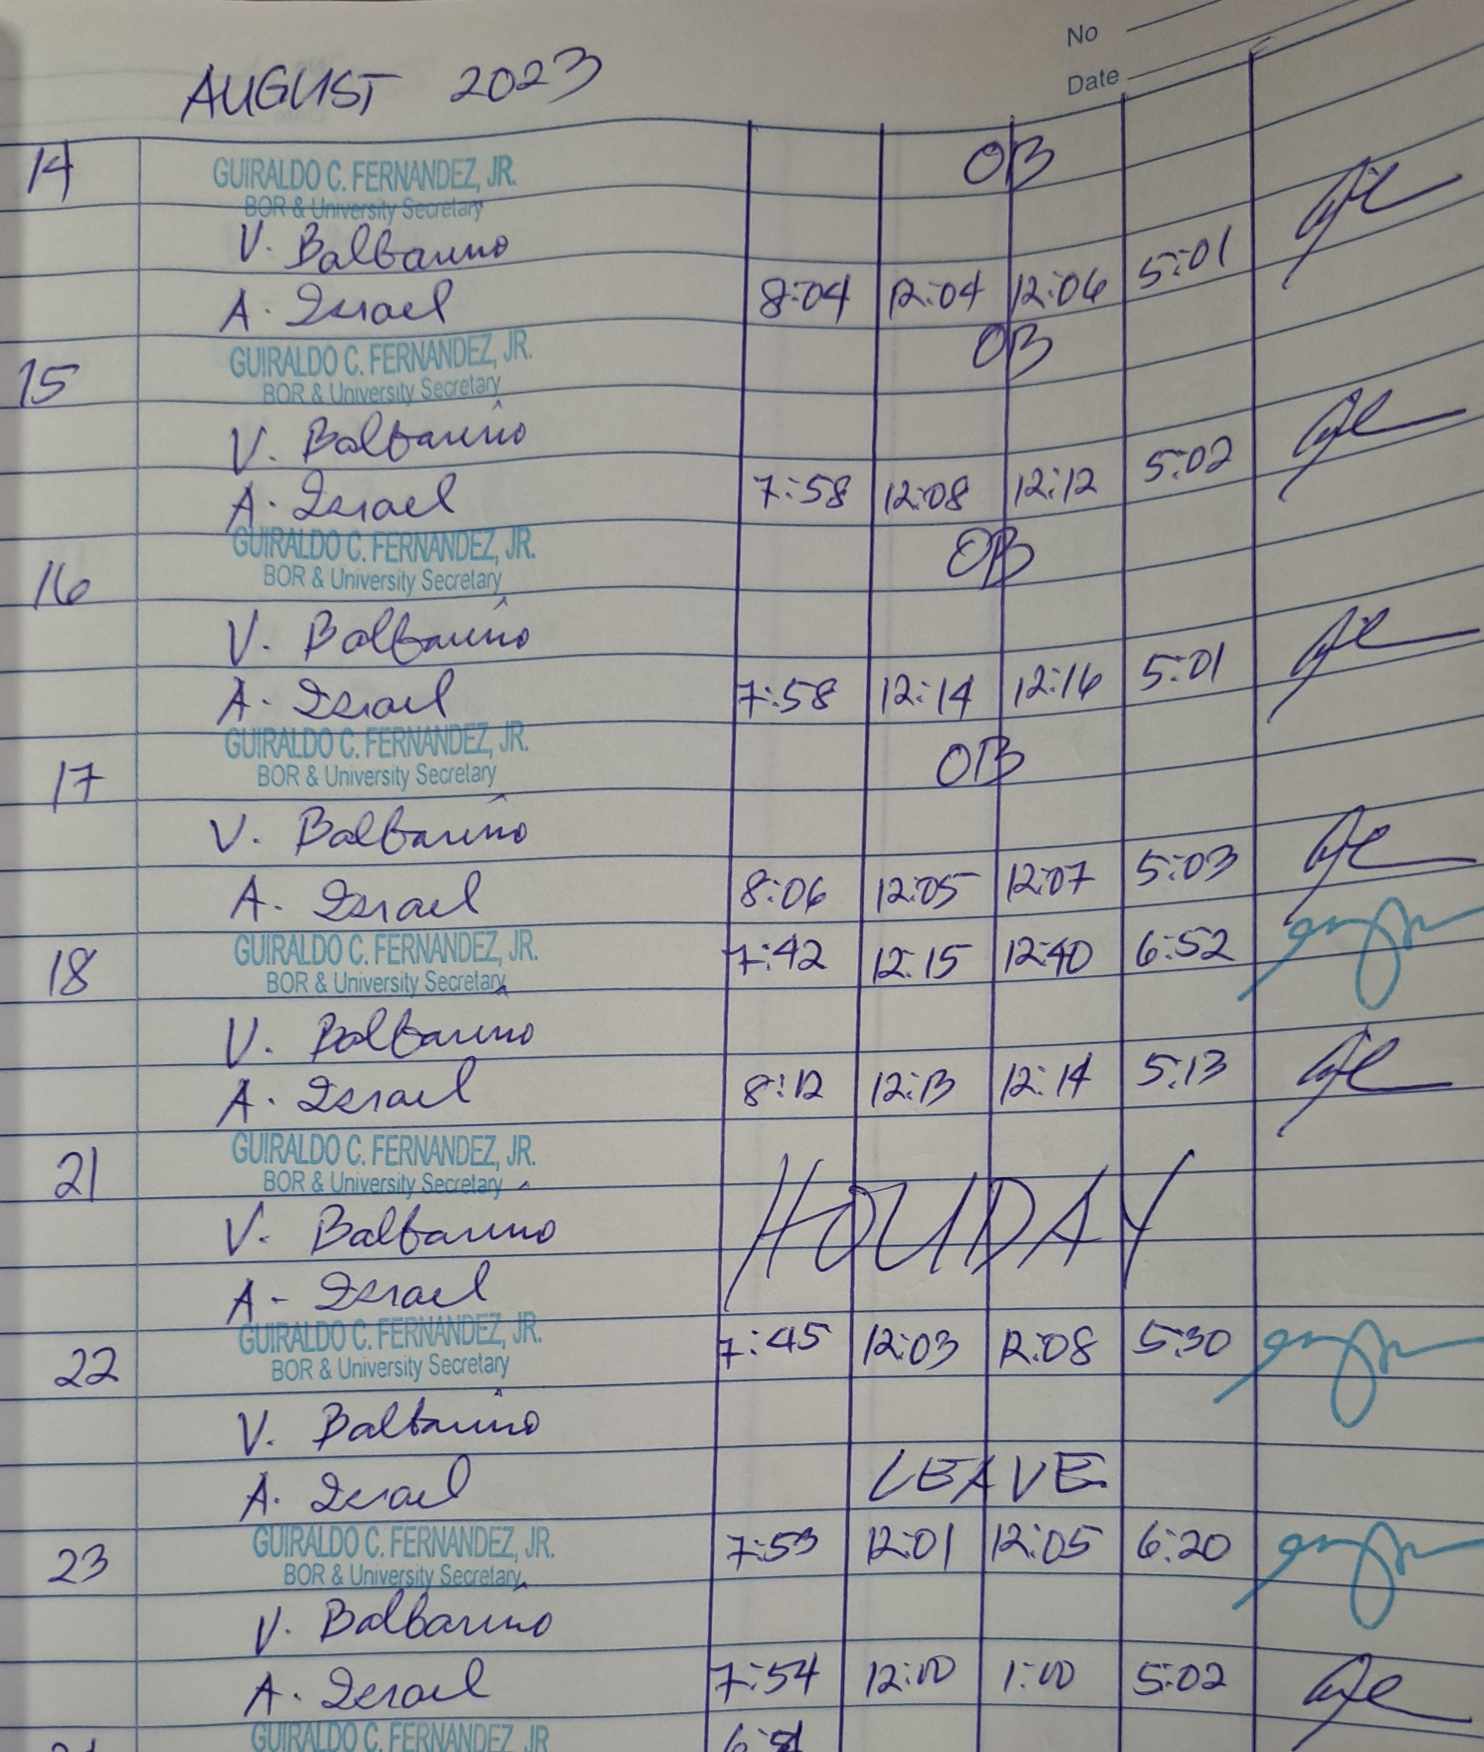 No
Date
AUGUST 2023
14 GUIRALDO C. FERNANDEZ, JR. OB
BOR & University Secretary
V. Balbarino
A. Israel 8:04 12:04 12:06 5:01
15 GUIRALDO C. FERNANDEZ, JR. OB
BOR & University Secretary
V. Balbarino
A. Israel 7:58 12:08 12:12 5:02
16 GUIRALDO C. FERNANDEZ, JR. OB
BOR & University Secretary
V. Balbarino
A. Israel 7:58 12:14 12:16 5:01
17 GUIRALDO C. FERNANDEZ, JR. OB
BOR & University Secretary
V. Balbarino
A. Israel 8:06 12:05 12:07 5:03
18 GUIRALDO C. FERNANDEZ, JR. 7:42 12:15 12:40 6:52
BOR & University Secretary
V. Balbarino
A. Israel 8:12 12:13 12:14 5:13
21 GUIRALDO C. FERNANDEZ, JR.
BOR & University Secretary
V. Balbarino HOLIDAY
A - Israel
22 GUIRALDO C. FERNANDEZ, JR. 7:45 12:03 12:08 5:30
BOR & University Secretary
V. Balbarino
A. Israel LEAVE
23 GUIRALDO C. FERNANDEZ, JR. 7:53 12:01 12:05 6:20
BOR & University Secretary
V. Balbarino
A. Israel 7:54 12:00 1:00 5:02
GUIRALDO C. FERNANDEZ, JR